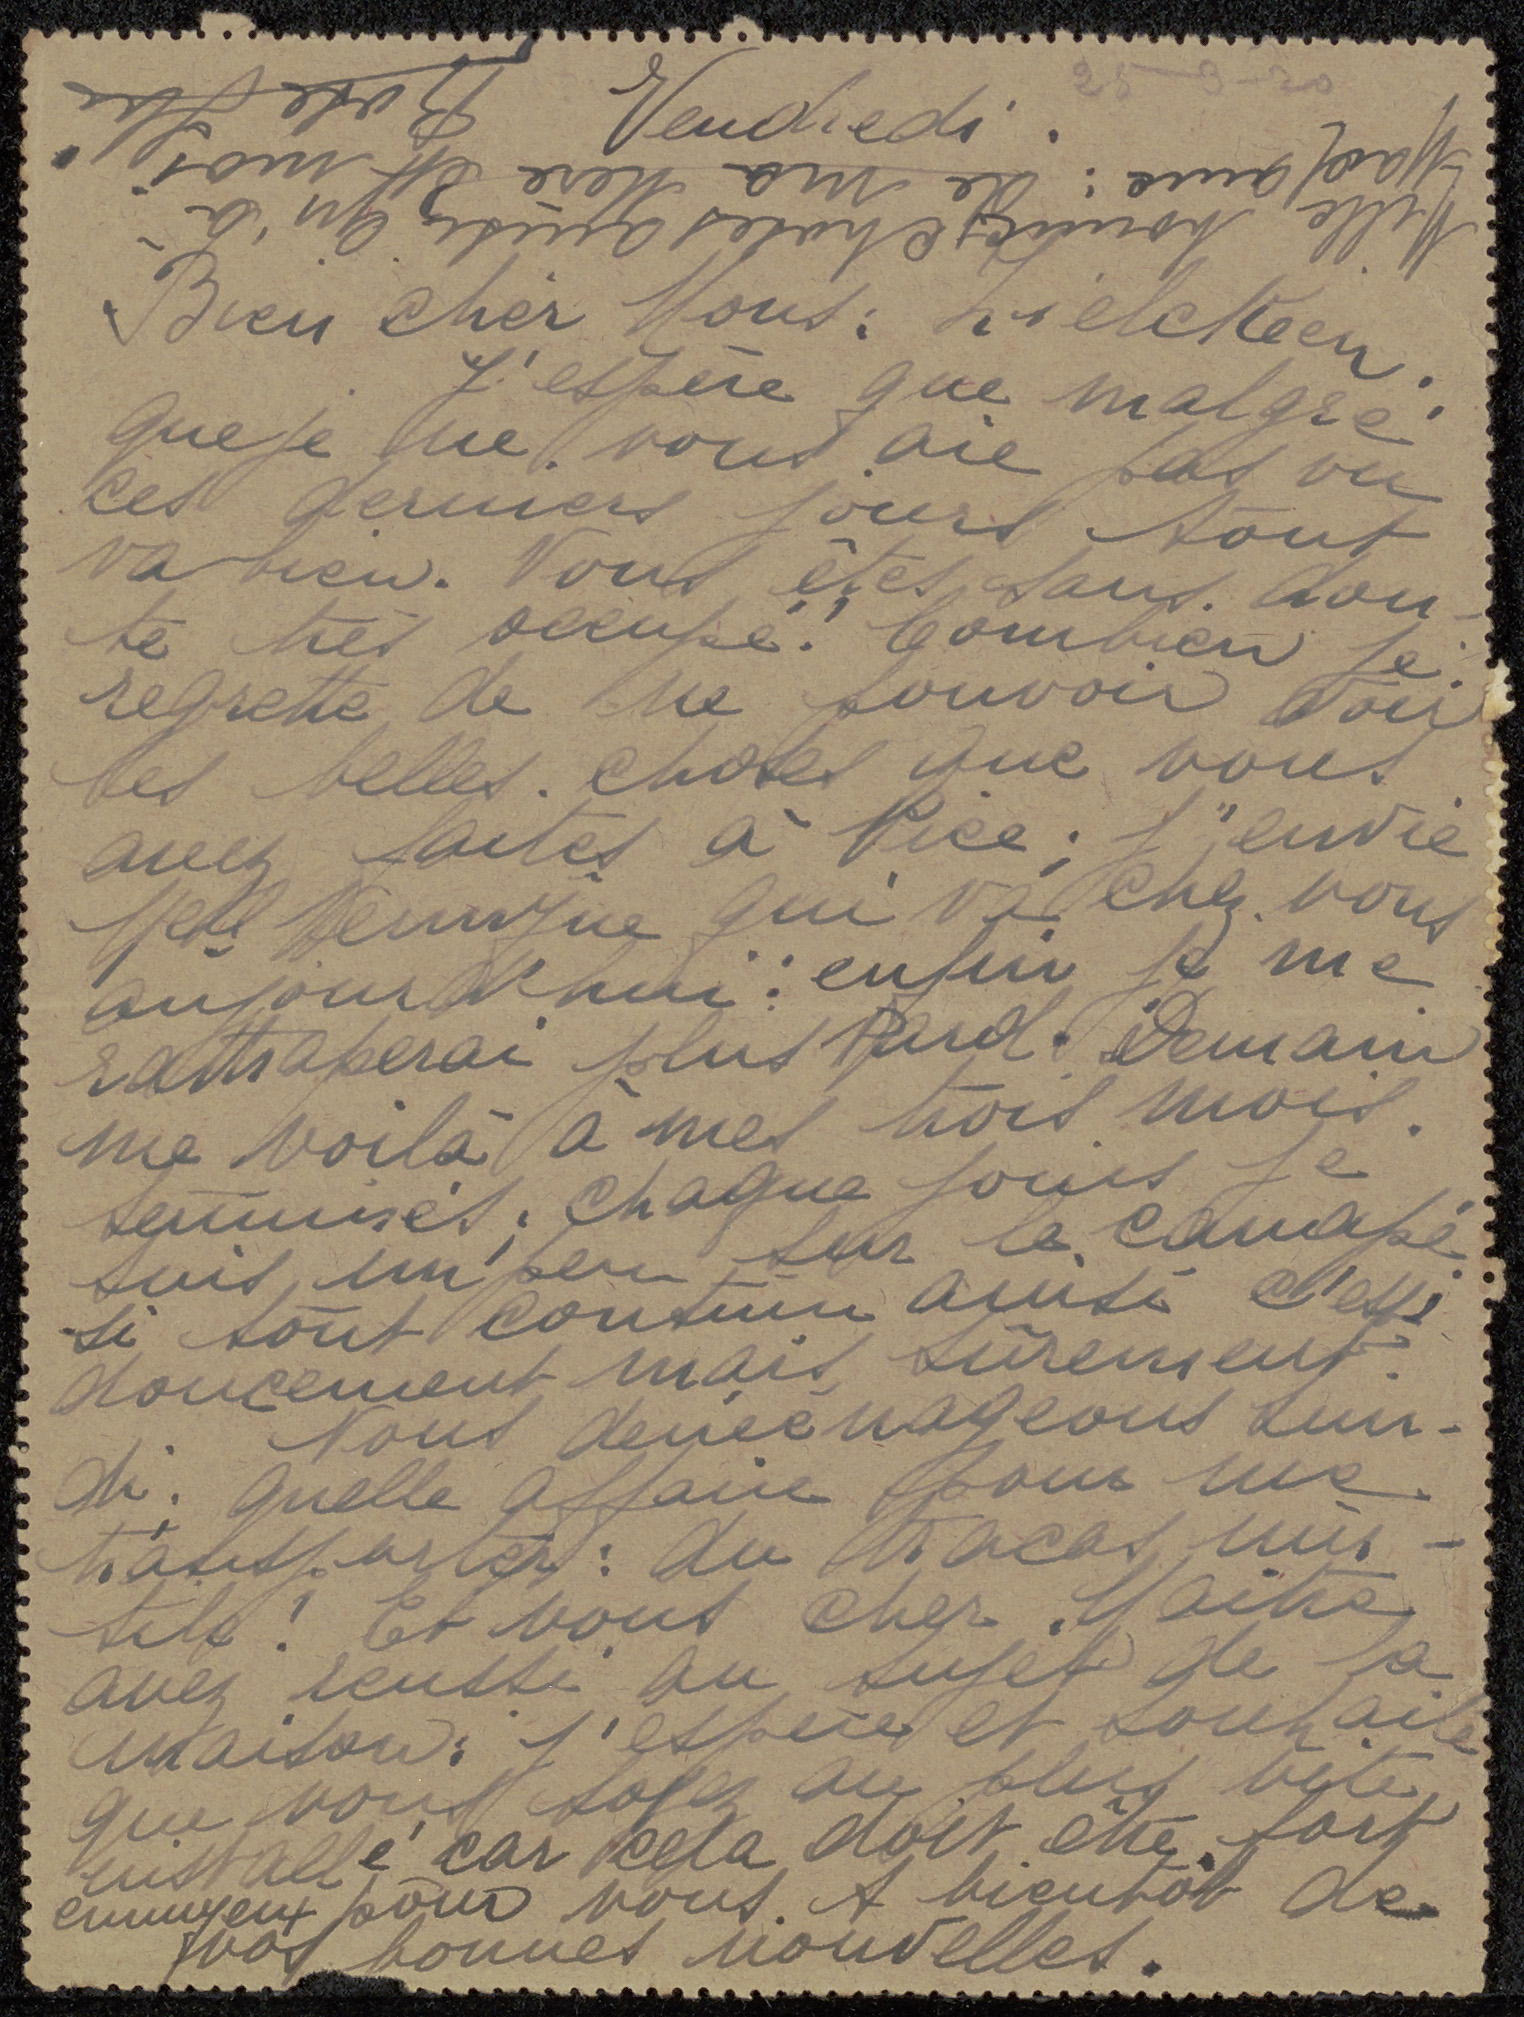 25-3-20
Vendredi.
Bien cher Mons: Mielckeen.
J'espère que malgré
que je ne vous aie pas vu
ces derniers jours tout
va bien. Vous êtes sans dou-
te très occupé! Combien je
regrette de ne pouvoir voir
les belles choses que vous
avez faites à Nice; j'envie
Melle qui va chez vous
aujourd'hui: enfin je me
rattraperai plus tard. Demain
me voilà à mes trois mois
terminés; chaque jour je
suis un peu sur le canapé
si tout continu ainsi c'est
doucement mais sûrement.
Nous demenageons lun-
di. quelle affaire pour me
transporter: du tracas inu-
tile! Et vous cher Maître
avez reussi au sujet de la
maison: j'espère et souhaite
que vous soyez au plus vite
installé car cela doit être fort
ennuyeux pour vous. A bientôt de
vos bonnes nouvelles.
Mille bonnes choses ainsi qu'à
Madame: de ma Mère et moi.
Rose